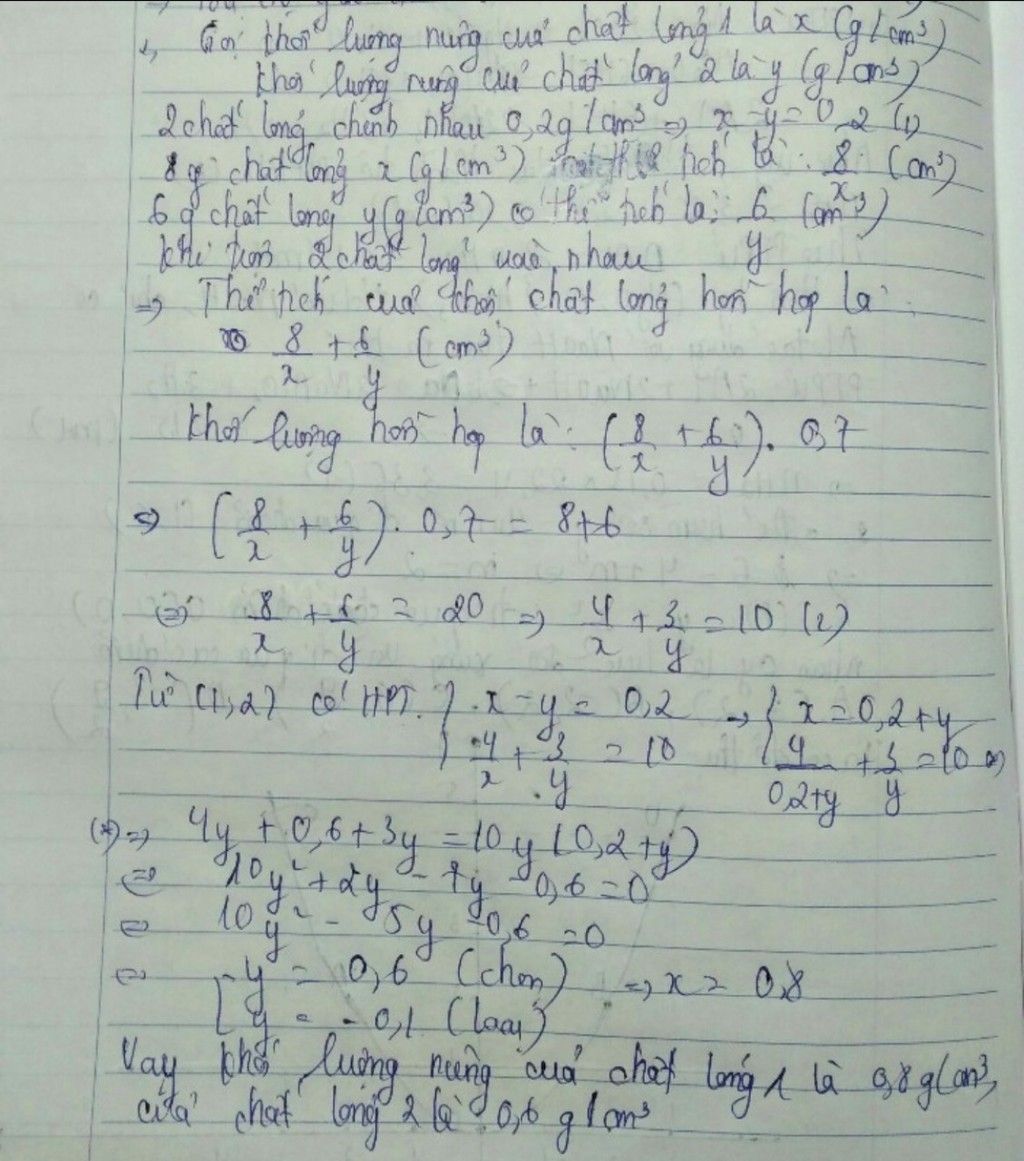 Gọi khối lượng riêng của chất lỏng 1 là x (g/cm³)
khối lượng riêng của chất lỏng 2 là y (g/cm³)
2 chất lỏng chênh nhau 0,2g/cm³ => x - y = 0,2 (1)
8g chất lỏng x (g/cm³) thể tích là: 8/x (cm³)
6g chất lỏng y (g/cm³) có thể tích là: 6/y (cm³)
khi trộn 2 chất lỏng vào nhau
=> Thể tích của khối chất lỏng hỗn hợp là:
8/x + 6/y (cm³)
khối lượng hỗn hợp là: (8/x + 6/y). 0,7
=> (8/x + 6/y). 0,7 = 8+6
<=> 8/x + 6/y = 20 => 4/x + 3/y = 10 (2)
Từ (1,2) có HPT { x - y = 0,2 => { x = 0,2+y
4/x + 3/y = 10 4/(0,2+y) + 3/y = 10 (*)
(*) => 4y + 0,6 + 3y = 10y (0,2+y)
<=> 10y² + 2y - 7y - 0,6 = 0
<=> 10y² - 5y - 0,6 = 0
<=> [ y = 0,6 (chọn) => x = 0,8
y = -0,1 (loại)
Vậy khối lượng riêng của chất lỏng 1 là 0,8g/cm³,
của chất lỏng 2 là 0,6 g/cm³